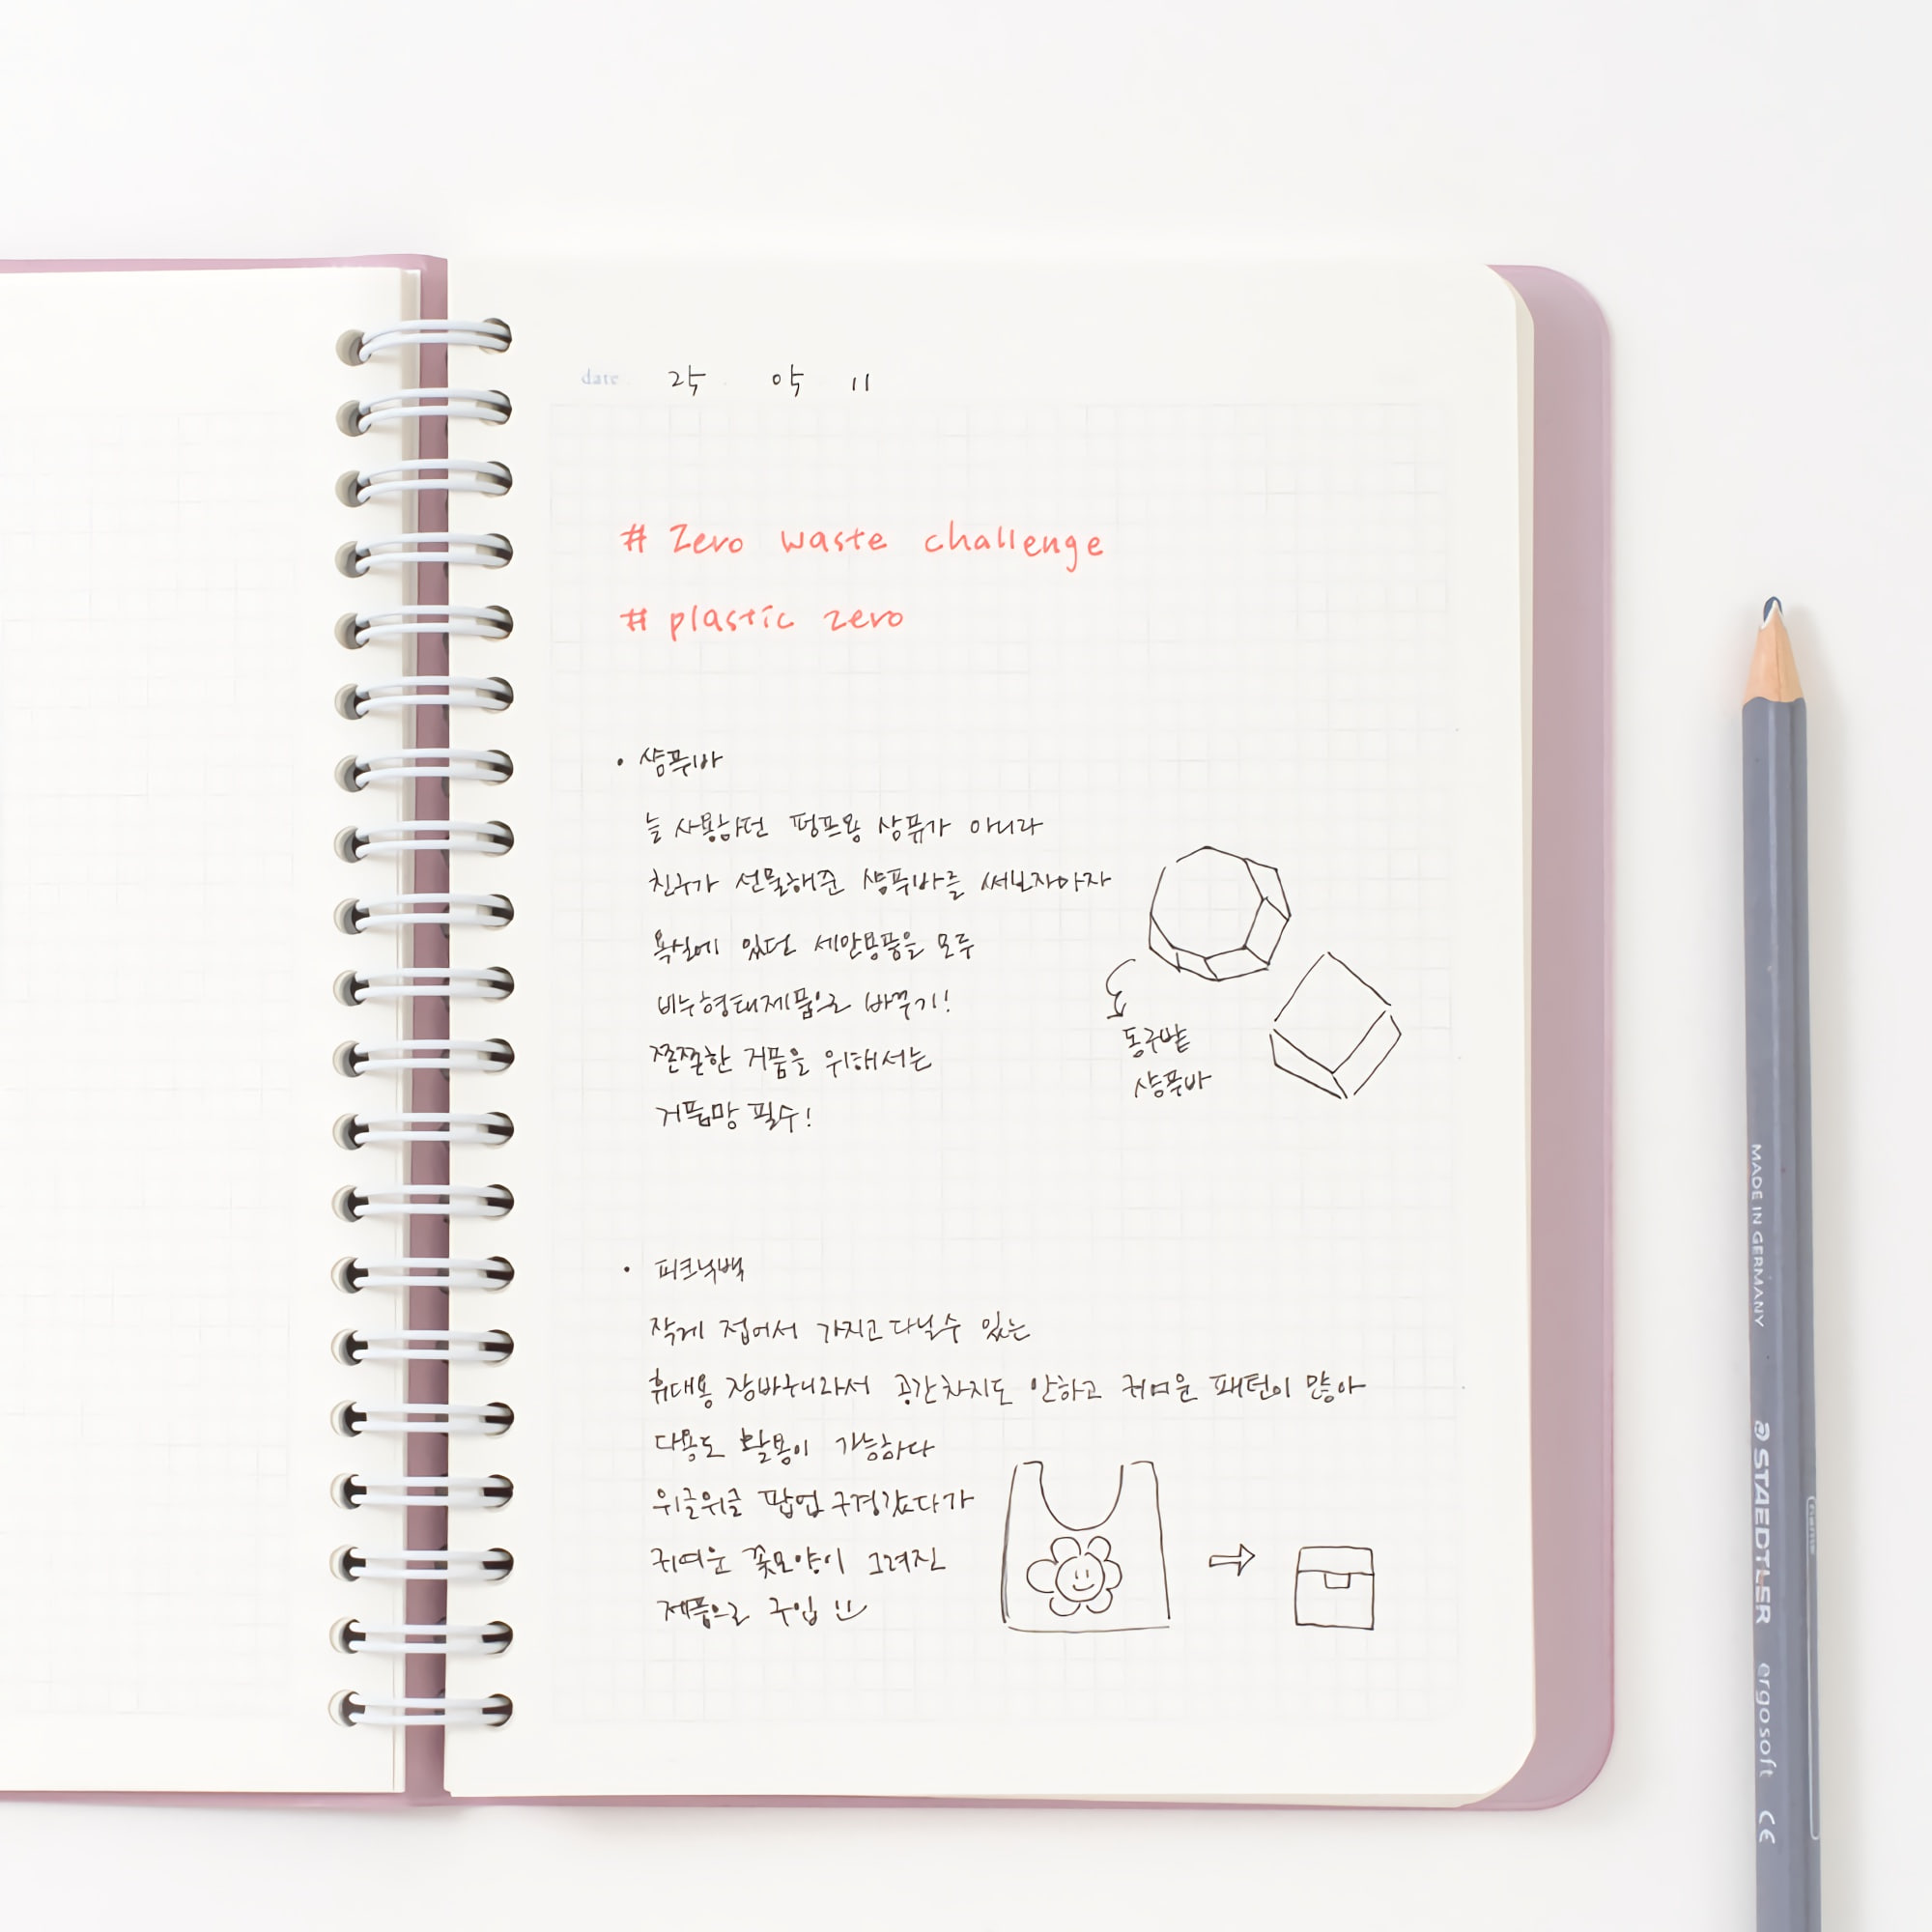 date
11
# Zero waste challenge
# plastic zero
· 샴푸바
늘 사용하던 펌프용 샴퓨가 아니라
친구가 선물해준 샴푸바를 써보자마자
욕실에 있던 세안용품을 모두
비누형태제품으로 바꾸기!
쫀쫀한 거품을 위해서는
거품망 필수!
동구밭
샴푸바
· 피크닉백
작게 접어서 가지고 다닐수 있는
휴대용 장바구니라서 공간차지도 안하고 귀여운 패턴이 많아
다용도 활용이 가능하다
위글위글 팝업 구경갔다가
귀여운 꽃모양이 그려진
제품으로 구입
MADE IN GERMANY
STAEDTLER ergosoft CE
name